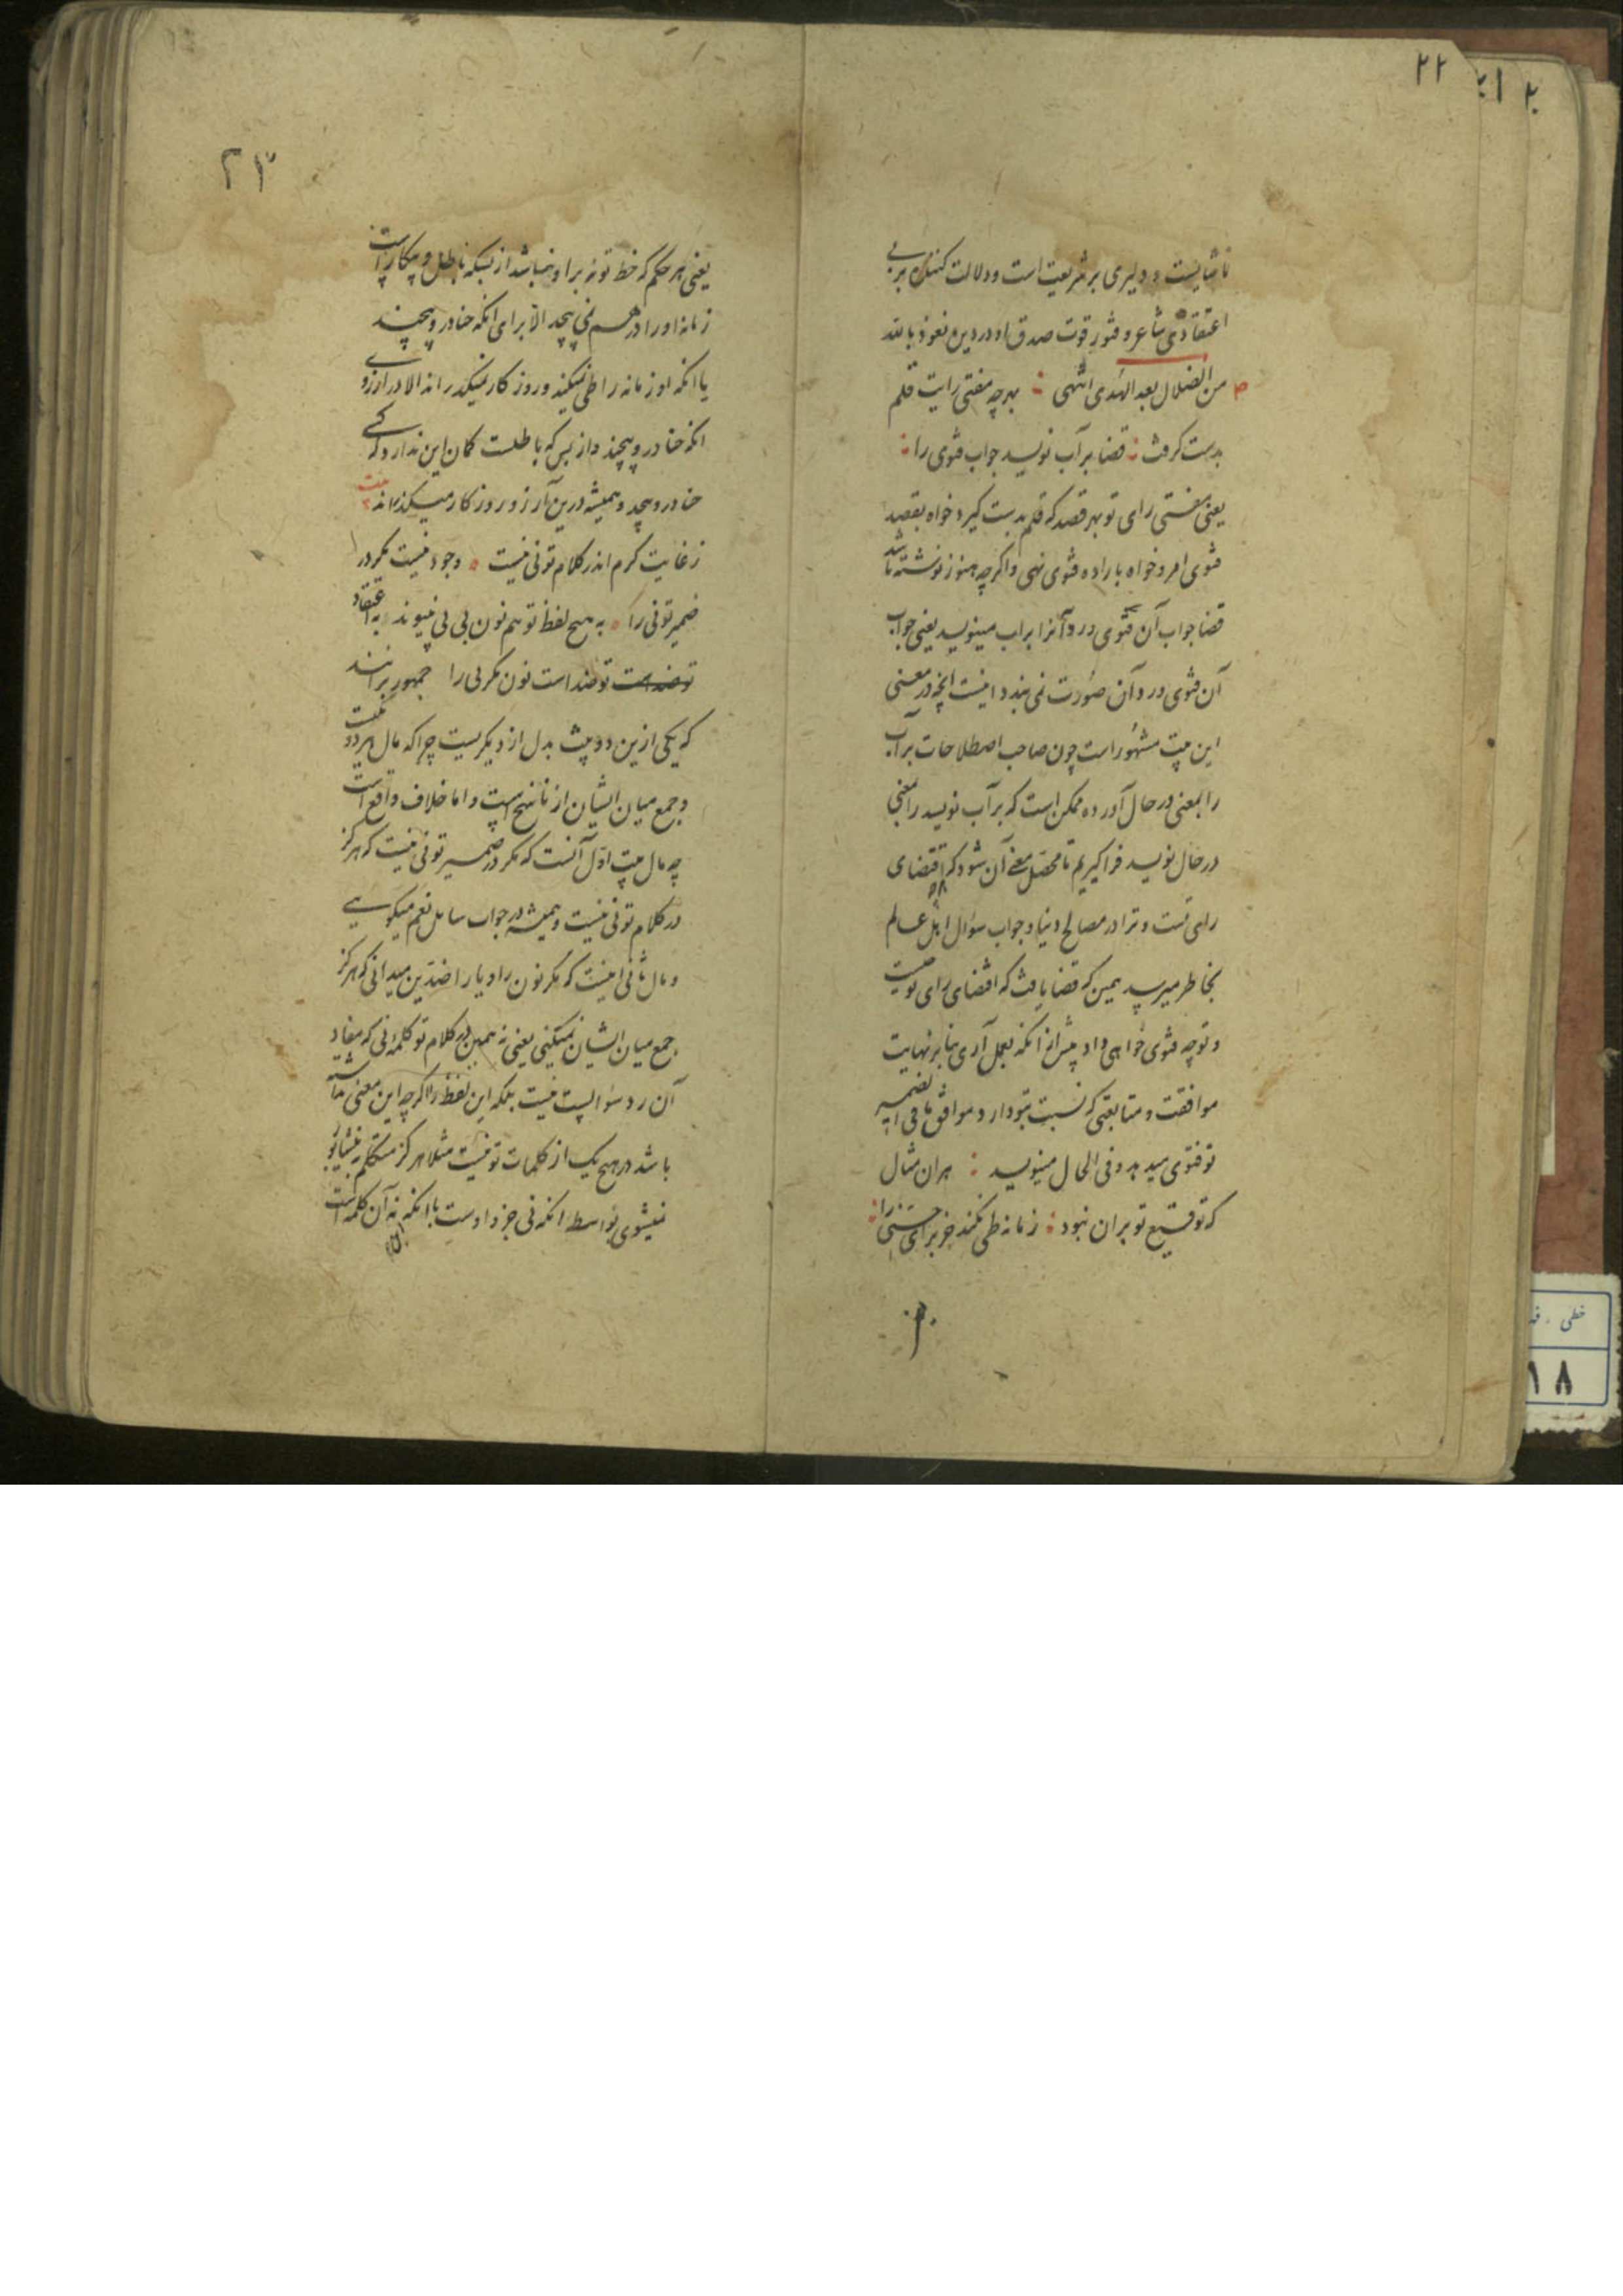 ۲۲
ناشایست و دلیری بر شریعت است و دلالت کننده بر بی
اعتقادی شاعر و فتور قوت صدق او در دین نعوذ بالله
من الضلال بعد الهدی انتهی بهرچه مفتی رایت قلم
بدست گرفت قضا بر آب نویسد جواب فتوی را
یعنی مفتی رای تو بهر قصد که قلم بدست گیرد خواه بقصد
فتوی امر و خواه باراده فتوی نهی و اگرچه هنوز نوشته باشد
قضا جواب آن فتوی در و آنرا براب مینویسد یعنی جواب
آن فتوی در و آن صورت می بندد اینست آنچه در معنی
این بیت مشهور است چون صاحب اصطلاحات بر آب
را بمعنی در حال آورده ممکن است که بر آب نویسد را بمعنی
در حال نویسد فرا گیریم تا محصل معنی آن شود که اقتضای
رای تست و ترا در مصالح دنیا و جواب سؤال اهل عالم
بخاطر میرسد همین که قضا یافت که اقتضای رای تو چیست
و توجه فتوی خواهی داد پیش از آنکه بعمل آری بنابر نهایت
موافقت و متابعتی که نسبت بتو دارد موافق ما فی الضمیر
تو فتوی میدهد و فی الحال مینویسد هران مثال
که توقیع تو بران نبود زمانه طی نکند جز برای حنی را
۲۳
یعنی هر حکم که خط تو نه بر او نباشد از بسکه باطل و بیکار است
زمانه او را در هم نمی پیچد الا برای آنکه حنا در و پیچند
یا آنکه او زمانه را طی نمیکند و روزگار نمیگذراند الا در ارزوی
انکه حنا در و پیچند و از بس که باطلست گمان این ندارد که کسی
حنا در و پیچد و همیشه درین آرزو روزگار میگذراند بیت
ز غایت کرم اندر کلام تو نی نیست وجود نیست مگر در
ضمیر تو نی را به هیچ لفظ تو هم نون بی بی نپیوندد به اعتقاد
تو ضد است تو ضد است نون مگر بی را جمهور برانند
که یکی ازین دو بیت بدل از دیگریست چرا که مال هر دو یکیست
و جمع میان ایشان از ناسخ است و اما خلاف واقع است
چه مال بیت اول آنست که مگر در ضمیر تو نی نیست که هرگز
در کلام تو نی نیست و همیشه در جواب سایل نعم میگویی
و مال ثانی اینست که مگر نون را و یا را ضدین میدانی که هرگز
جمع میان ایشان نمیکنی یعنی نه همین در کلام تو کلمه نی که مفاد
آن رد سؤالیست نیست بلکه این لفظ را اگرچه این معنی نداشته
باشد در هیچ یک از کلمات تو نیست مثلا هرگز متکلم به نیشابور
نمیشوی بواسطه آنکه نی جزو اوست با آنکه نه آن کلمه است
خطی
۱۸